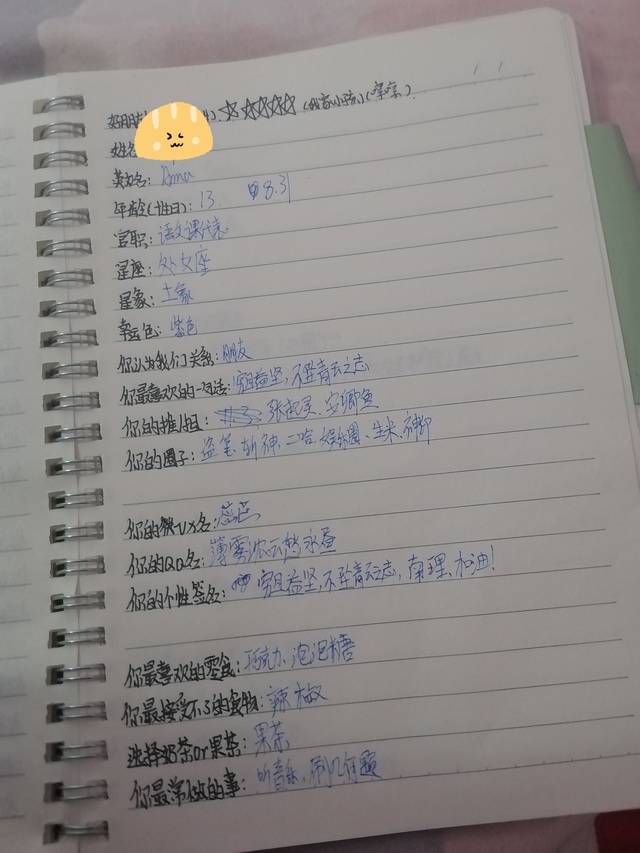 好朋友 ☆☆☆☆☆ (我家小孩)
姓名
英文名: Anna
年龄(生日): 13 8.31
官职: 语文课代表
星座: 处女座
星象: 土象
幸运色: 紫色
你认为我们关系: 朋友
你最喜欢的一句话: 穷且益坚,不坠青云之志
你的推/担: 张起灵、安卿鱼
你的圈子: 盗笔、斩神、二哈、娱乐圈、生米、神印
你的微VX名:
你的QQ名: 薄雾浓云愁永昼
你的个性签名: 穷且益坚,不坠青云之志,南理,加油!
你最喜欢的零食: 巧克力、泡泡糖
你最接受不了的食物: 辣椒
选择奶茶or果茶: 果茶
你最常做的事: 听音乐,刷几何题